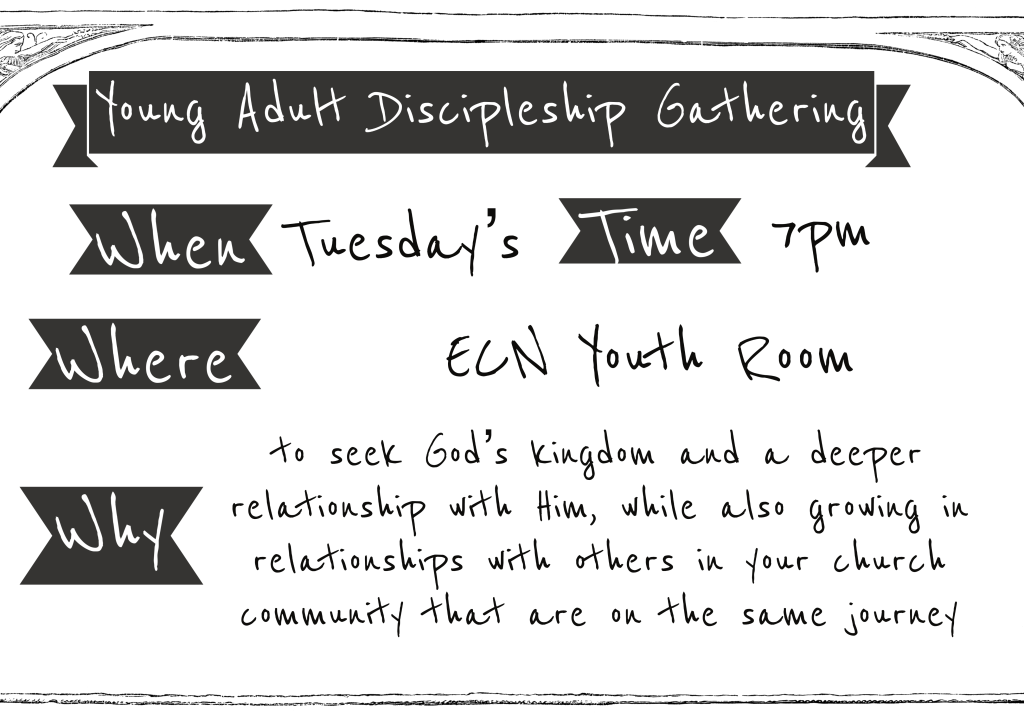 Young Adult Discipleship Gathering
When Tuesday's Time 7pm
Where ECN Youth Room
Why
to seek God's kingdom and a deeper
relationship with Him, while also growing in
relationships with others in your church
community that are on the same journey